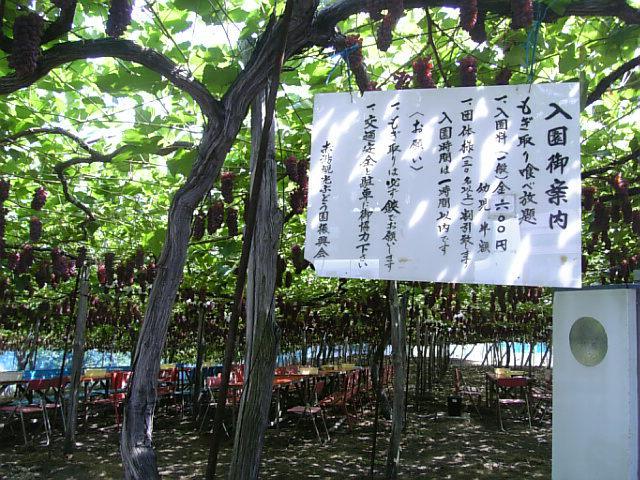 入園御案内
もぎ取り食べ放題
一、入園料 一般 金六〇〇円
幼児 半額
一、団体様(三〇名以上)割引致します
入園時間は一時間以内です
(お願い)
一、もぎ取りは必ず鋏でお願いします
一、交通安全と駐車に御協力下さい
観光ぶどう園振興会